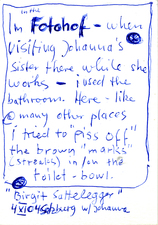 in the
Im Fotohof - when
visiting Johanna's
sister there while she
works - i used the
bathroom. Here - like
@ many other places
I tried to "piss off"
the brown "marks"
(streaks) in/on the
toilet - bowl.
"Birgit Sattelegger"
4 VI 04 Salzburg w/ Johanna